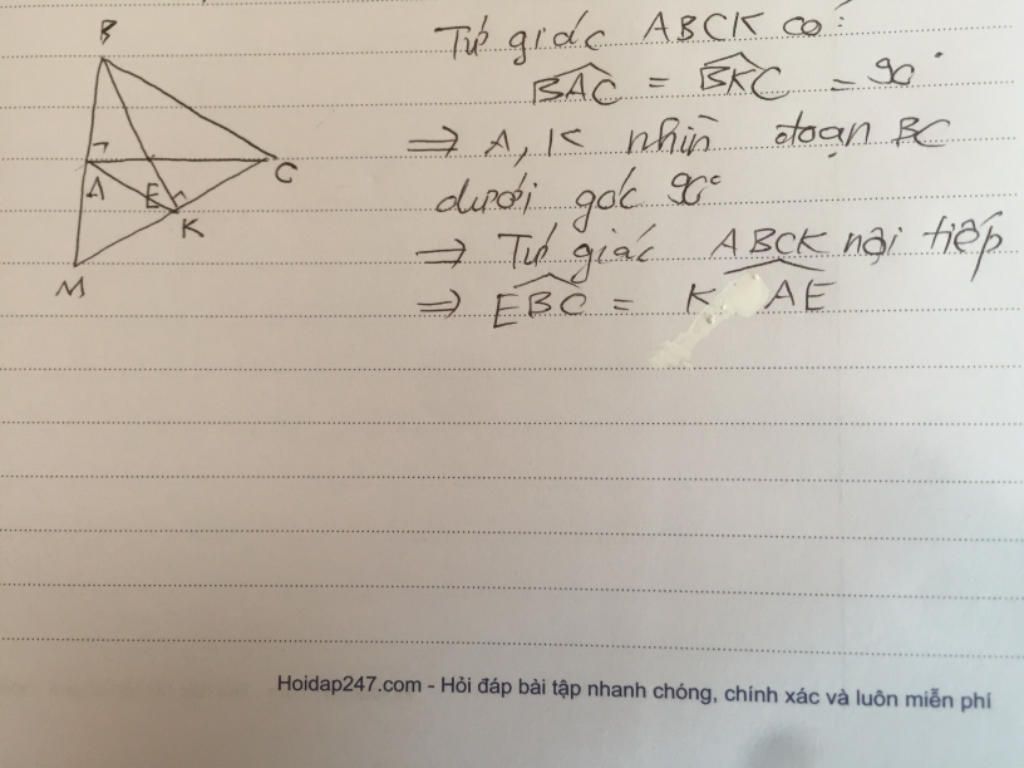 B
A
E
K
C
M
Tứ giác ABCK có:
BAC = BKC = 90°
⇒ A, K nhìn đoạn BC
dưới góc 90°
⇒ Tứ giác ABCK nội tiếp
⇒ EBC = KAE
Hoidap247.com - Hỏi đáp bài tập nhanh chóng, chính xác và luôn miễn phí